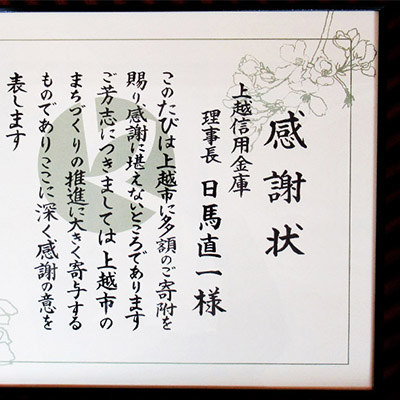 感謝状
上越信用金庫
理事長 日馬直一様
このたびは上越市に多額のご寄附を
賜り感謝に堪えないところであります
ご芳志につきましては上越市の
まちづくりの推進に大きく寄与する
ものでありここに深く感謝の意を
表します